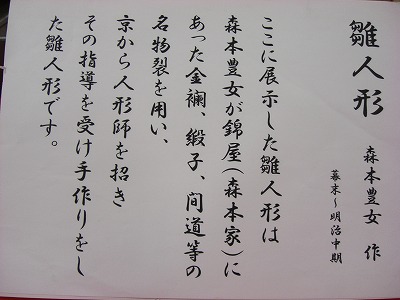 雛人形
森本豊女 作
幕末〜明治中期
ここに展示した雛人形は
森本豊女が錦屋(森本家)に
あった金襴、緞子、間道等の
名物裂を用い、
京から人形師を招き
その指導を受け手作りをし
た雛人形です。